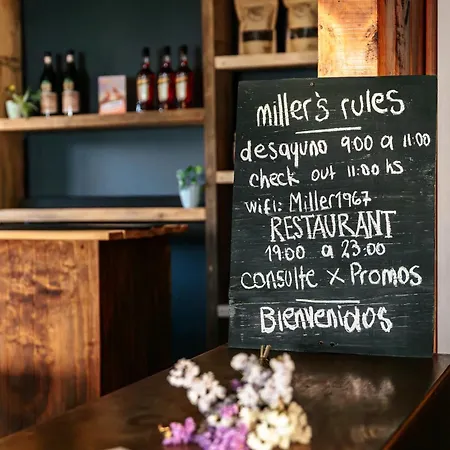 miller's rules
desayuno 9:00 a 11:00
check out 11:00 hs
wifi: Miller1967
RESTAURANT
19:00 a 23:00
consulte x Promos
Bienvenidos